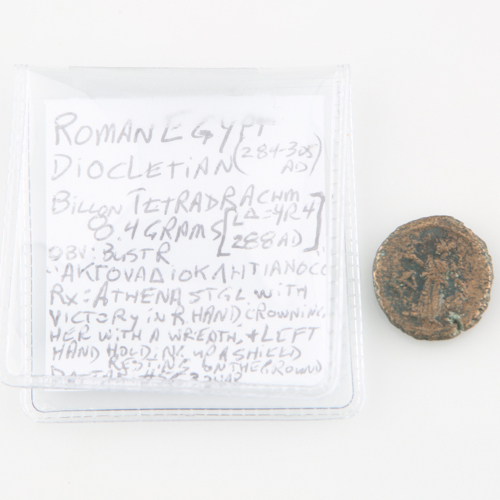 ROMAN EGYPT
DIOCLETIAN (284-305 AD)
BILLON TETRADRACHM
8.4 GRAMS [LΔ=YR4 288AD]
OBV: BUST R
"ΑΚΤΟΥΑΔΙΟΚΛΗΤΙΑΝΟCC
RX: ATHENA STG L WITH
VICTORY IN R HAND CROWNING
HER WITH A WREATH, + LEFT
HAND HOLDING UP A SHIELD
RESTING ON THE GROUND